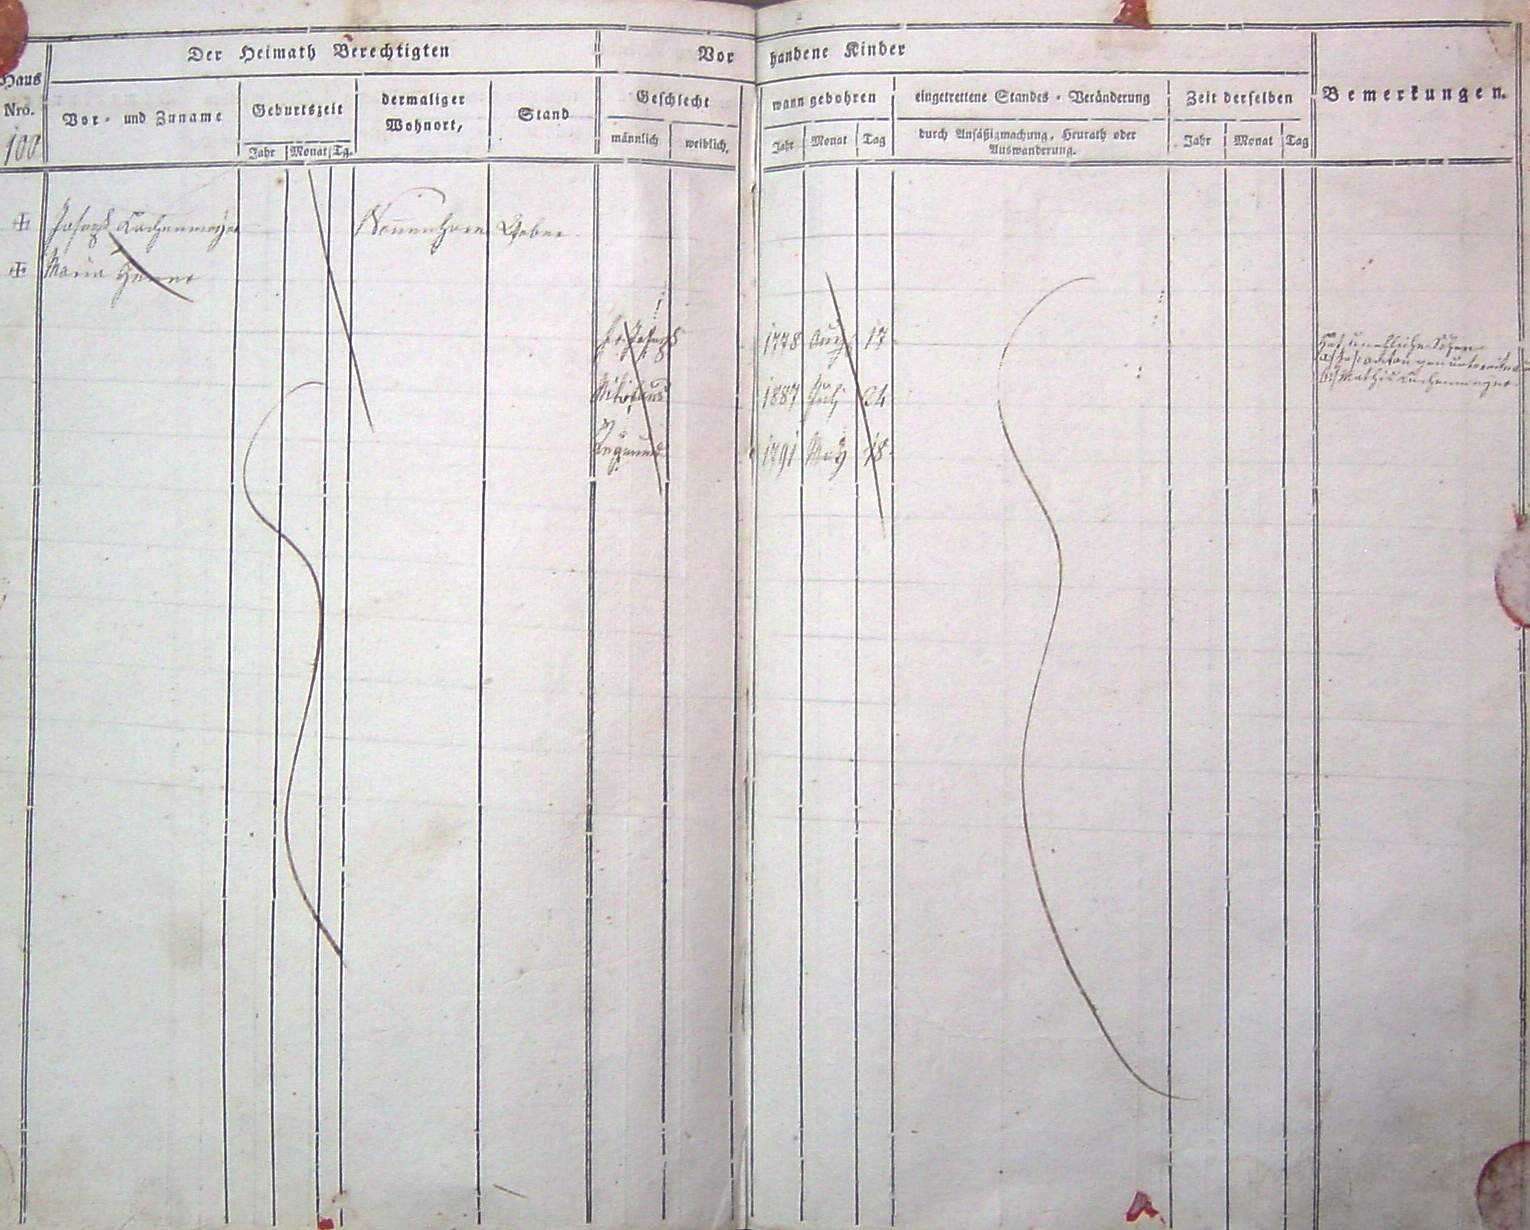 Der Heimath Berechtigten
Vor handene Kinder
Haus
Nro.
100
Vor- und Zuname
Geburtszeit
Jahr Monat Tg.
dermaliger
Wohnort,
Stand
Geschlecht
männlich weiblich,
wann gebohren
Jahr Monat Tag
eingetrettene Standes-Veränderung
durch Ansäßigmachung, Heurath oder
Auswanderung.
Zeit derselben
Jahr Monat Tag
Bemerkungen.
Joseph Lachenmayer Weber
Maria
Joseph 1778 Aug 17
Nikolaus 1887 July 24
1791 May 18
Hat uneheliche
b/ Mathis Lachenmayer